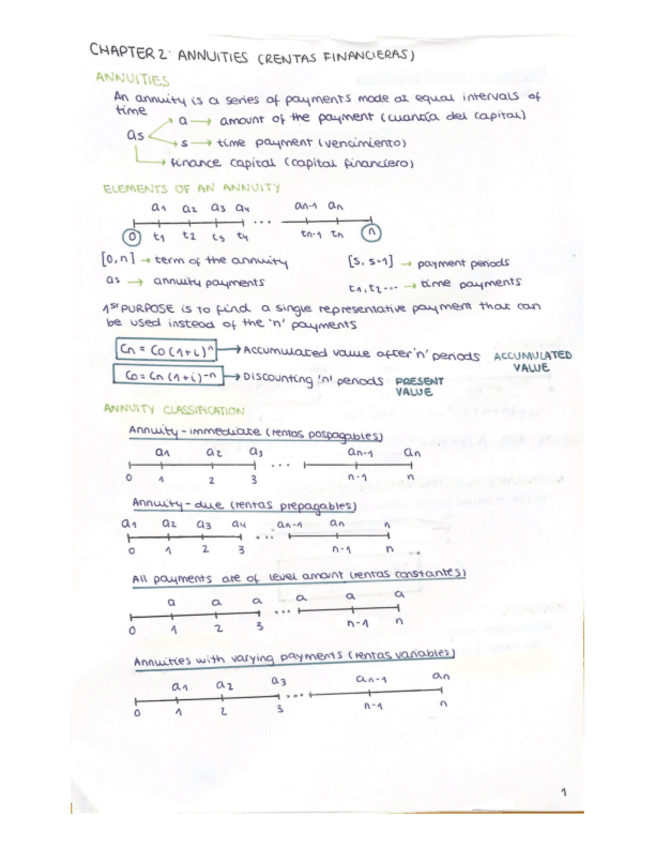 CHAPTER 2: ANNUITIES (RENTAS FINANCIERAS)
ANNUITIES
An annuity is a series of payments made at equal intervals of
time
a → amount of the payment (cuantía del capital)
as
s → time payment (vencimiento)
finance capital (capital financiero)
ELEMENTS OF AN ANNUITY
a1 a2 a3 a4 an-1 an
...
0 t1 t2 t3 t4 tn-1 tn n
[0,n] → term of the annuity [s, s+1] → payment periods
as → annuity payments t1, t2 ... → time payments
1st PURPOSE is to find a single representative payment that can
be used instead of the 'n' payments
Cn = C0 (1+i)^n → Accumulated value after 'n' periods ACCUMULATED
VALUE
C0 = Cn (1+i)^-n → Discounting 'n' periods PRESENT
VALUE
ANNUITY CLASSIFICATION
Annuity-immediate (rentas pospagables)
a1 a2 a3 ... an-1 an
0 1 2 3 n-1 n
Annuity-due (rentas prepagables)
a1 a2 a3 a4 an-1 an n
...
0 1 2 3 n-1 n
All payments are of level amount (rentas constantes)
a a a ... a a a
0 1 2 3 n-1 n
Annuities with varying payments (rentas variables)
a1 a2 a3 ... an-1 an
0 1 2 3 n-1 n
1